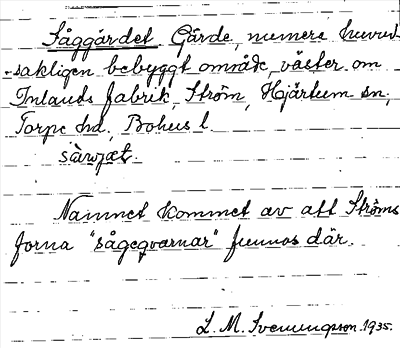 Såggärdet. Gärde, numera huvud-
sakligen bebyggt område, väster om
Inlands fabrik, Ström, Hjärtum sn,
Torpe hd, Bohus l.
Namnet kommet av att Ströms
forna "sågeqvarnar" funnos där.
L. M. Svenungsson. 1935.